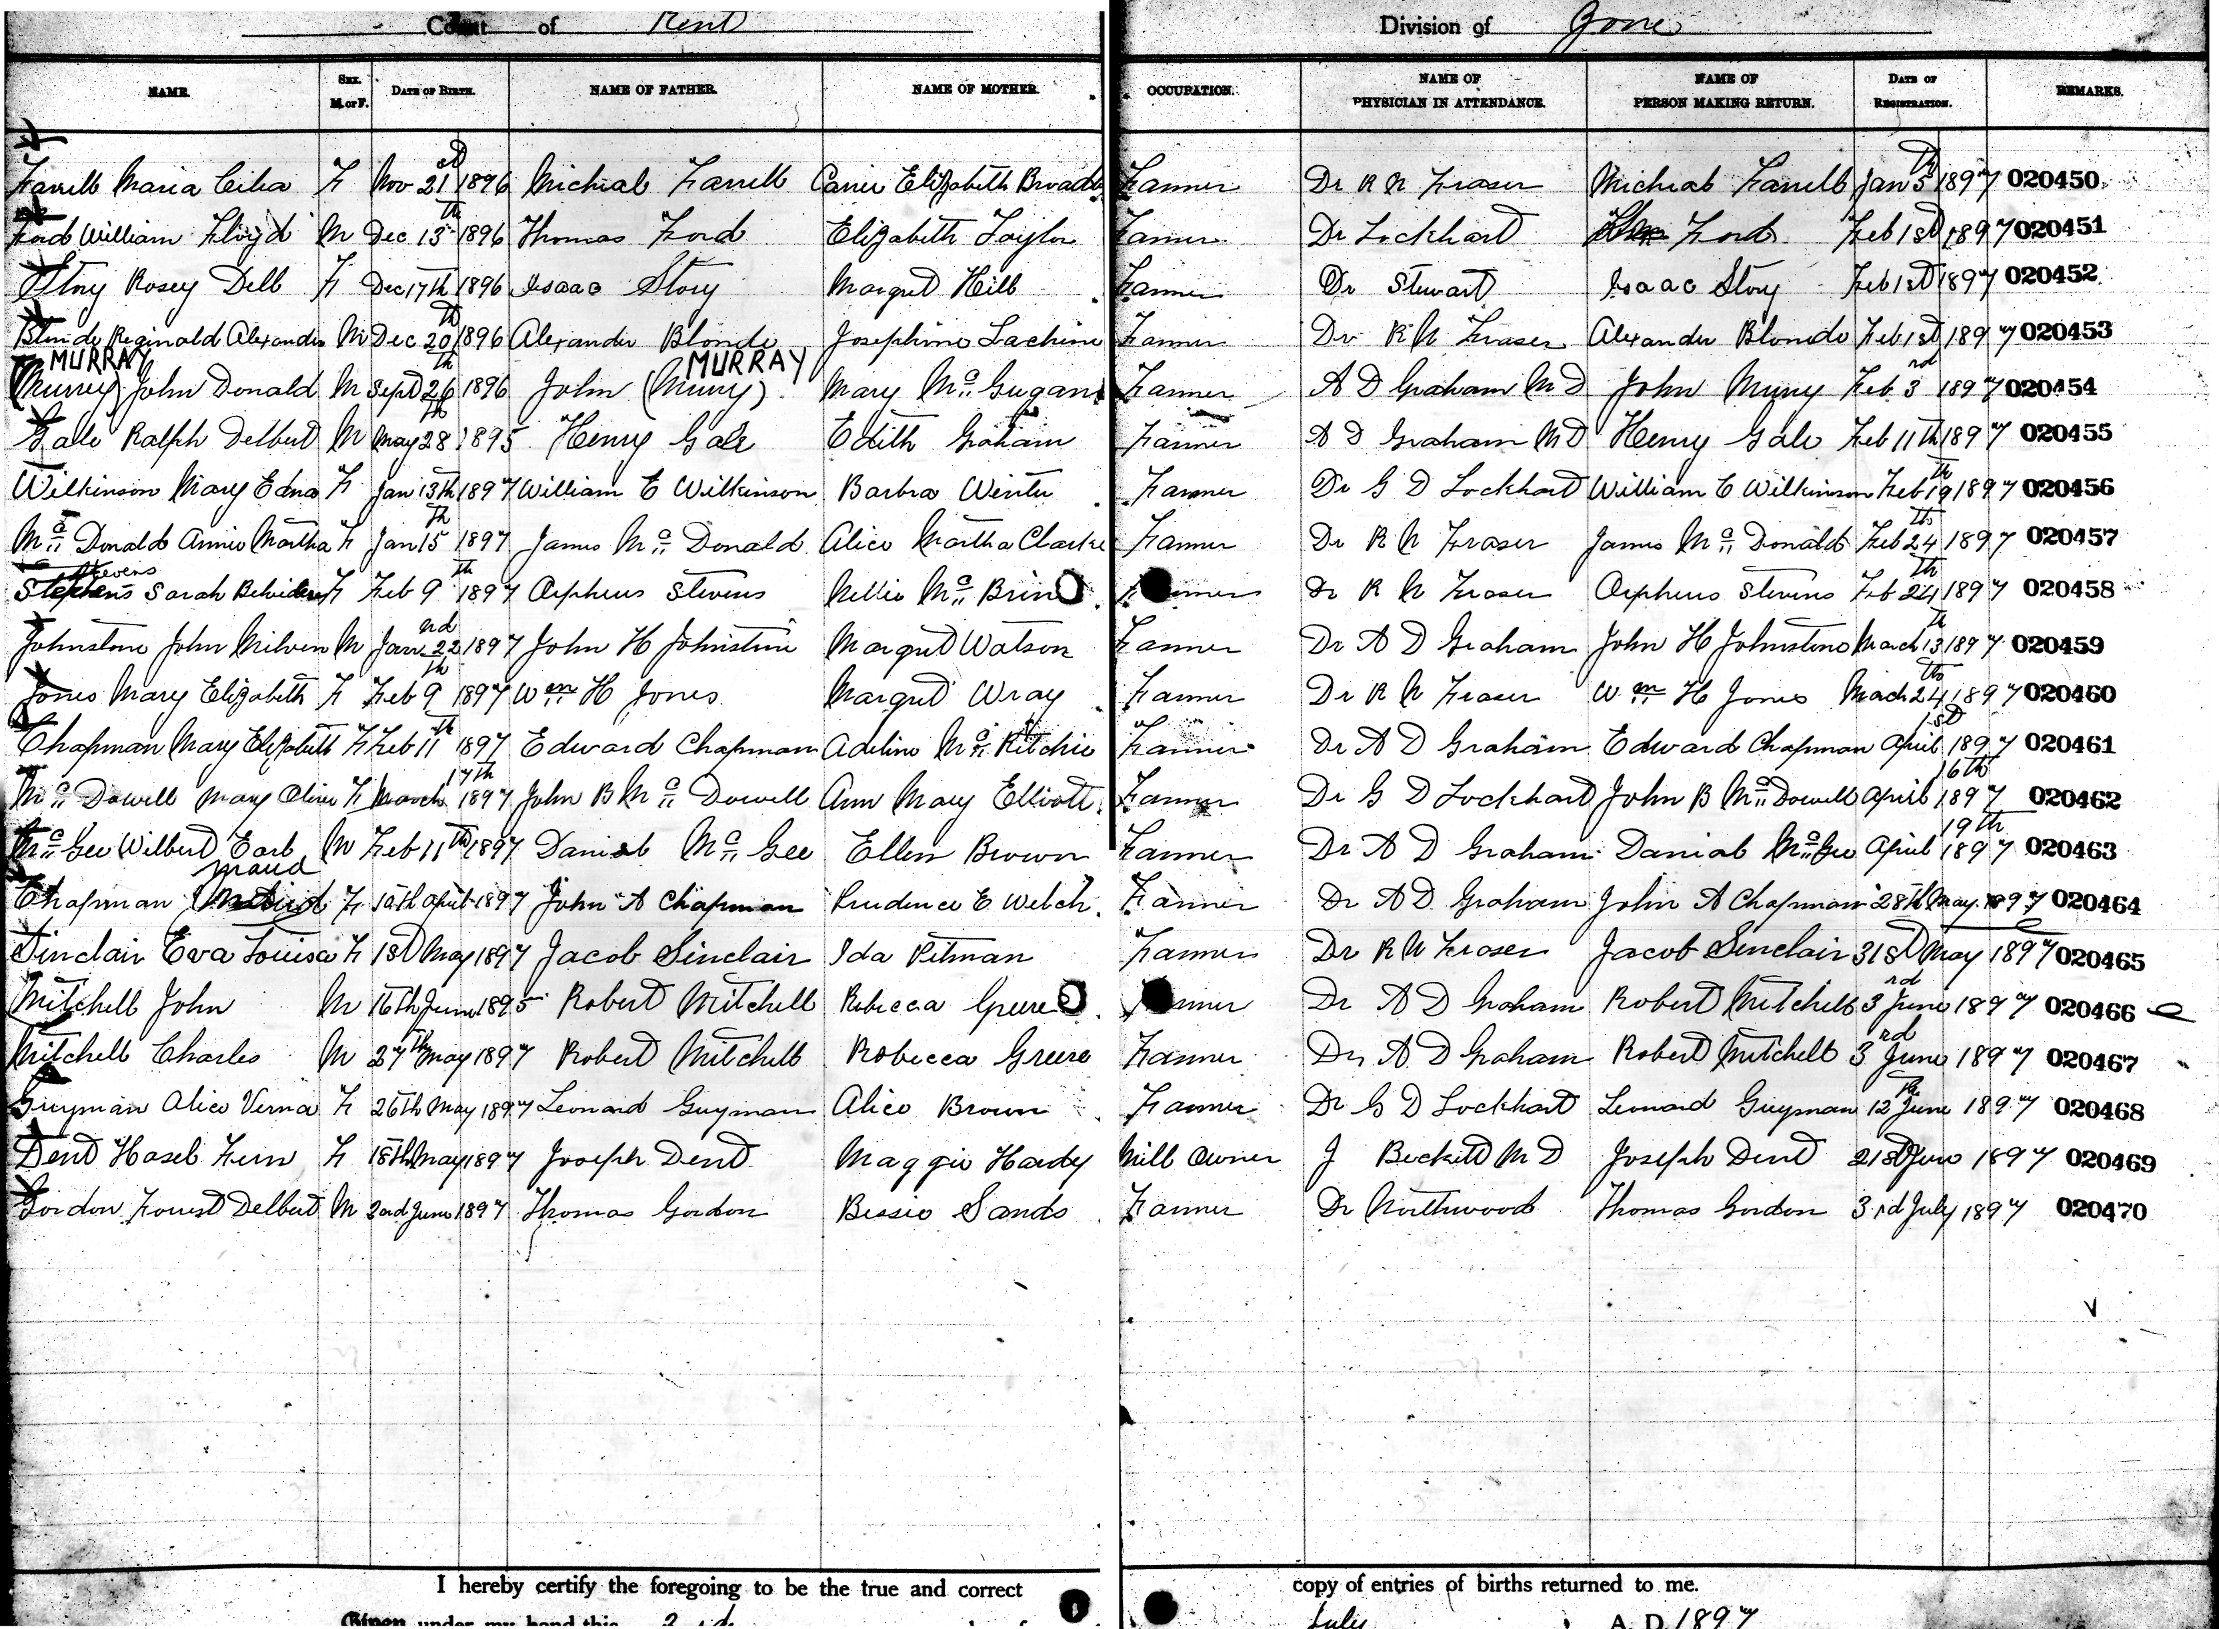 Count of Kent Division of Gore
NAME. SEX. M. or F. DATE OF BIRTH. NAME OF FATHER. NAME OF MOTHER. OCCUPATION. NAME OF PHYSICIAN IN ATTENDANCE. NAME OF PERSON MAKING RETURN. DATE OF REGISTRATION. REMARKS.
Farrell Maria Celia F Nov 21st 1896 Michial Farrell Carrie Elizabeth Farmer Dr R N Fraser Michial Farrell Jan 5th 1897 020450
Ford William Floyd M Dec 13th 1896 Thomas Ford Elizabeth Taylor Farmer Dr Lockhart Ford Feb 1st 1897 020451
Story Rosey Dell F Dec 17th 1896 Isaac Story Margret Hill Farmer Dr Stewart Isaac Story Feb 1st 1897 020452
Blonde Reginald Alexander M Dec 20th 1896 Alexander Blonde Josephine Lachine Farmer Dr R N Fraser Alexander Blonde Feb 1st 1897 020453
MURRAY MURRAY
(Murrey) John Donald M Sept 26th 1896 John (Murry) Mary Mc Gugan Farmer A D Graham M D John Murry Feb 3rd 1897 020454
Gale Ralph Delbert M May 28th 1895 Henry Gale Edith Graham Farmer A D Graham M D Henry Gale Feb 11th 1897 020455
Wilkinson Mary Edna F Jan 13th 1897 William E Wilkinson Barbra Winter Farmer Dr G D Lockhart William E Wilkinson Feb 19th 1897 020456
Mc Donald Annie Martha F Jan 15th 1897 James Mc Donald Alice Martha Clarke Farmer Dr R N Fraser James Mc Donald Feb 24th 1897 020457
Stevens
Stephens Sarah F Feb 9th 1897 Orpheus Stevens Nellie Mc Brin Farmer Dr R N Fraser Orpheus Stevens Feb 24th 1897 020458
Johnstone John Milven M Jan 22nd 1897 John H Johnstone Margret Watson Farmer Dr A D Graham John H Johnstone March 13th 1897 020459
Jones Mary Elizabeth F Feb 9th 1897 Wm H Jones Margret Wray Farmer Dr R N Fraser Wm H Jones March 24th 1897 020460
Chapman Mary Elizabeth F Feb 11th 1897 Edward Chapman Adeline Mc Ritchie Farmer Dr A D Graham Edward Chapman April 1st 1897 020461
Mc Dowell Mary Olive F March 17th 1897 John B Mc Dowell Ann Mary Elliott Farmer Dr G D Lockhart John B Mc Dowell April 16th 1897 020462
Mc Gee Wilbert Earl M Feb 11th 1897 Danial Mc Gee Ellen Brown Farmer Dr A D Graham Danial Mc Gee April 19th 1897 020463
Maud
Chapman F 10th April 1897 John A Chapman Prudence E Welch Farmer Dr A D Graham John A Chapman 28th May 1897 020464
Sinclair Eva Louisa F 1st May 1897 Jacob Sinclair Ida Pitman Farmer Dr R N Fraser Jacob Sinclair 31st May 1897 020465
Mitchell John M 16th June 1895 Robert Mitchell Rebecca Greere Farmer Dr A D Graham Robert Mitchell 3rd June 1897 020466
Mitchell Charles M 27th May 1897 Robert Mitchell Robecca Greere Farmer Dr A D Graham Robert Mitchell 3rd June 1897 020467
Guyman Alice Verna F 26th May 1897 Leonard Guyman Alice Brown Farmer Dr G D Lockhart Leonard Guyman 12th June 1897 020468
Dent Hasel Fern F 18th May 1897 Joseph Dent Maggie Hardy Mill Owner J Beckett M D Joseph Dent 21st June 1897 020469
Gordon Forrest Delbert M 2nd June 1897 Thomas Gordon Bessie Sands Farmer Dr Northwood Thomas Gordon 3rd July 1897 020470
I hereby certify the foregoing to be the true and correct copy of entries of births returned to me.
Given under my hand this 3rd July A. D. 1897